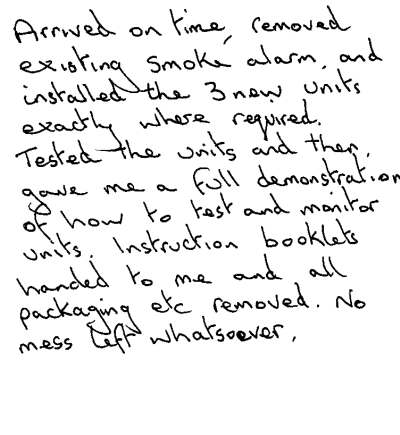 Arrived on time, removed
existing smoke alarm, and
installed the 3 new units
exactly where required.
Tested the units and then,
gave me a full demonstration
of how to test and monitor
units. Instruction booklets
handed to me and all
packaging etc removed. No
mess left whatsoever.